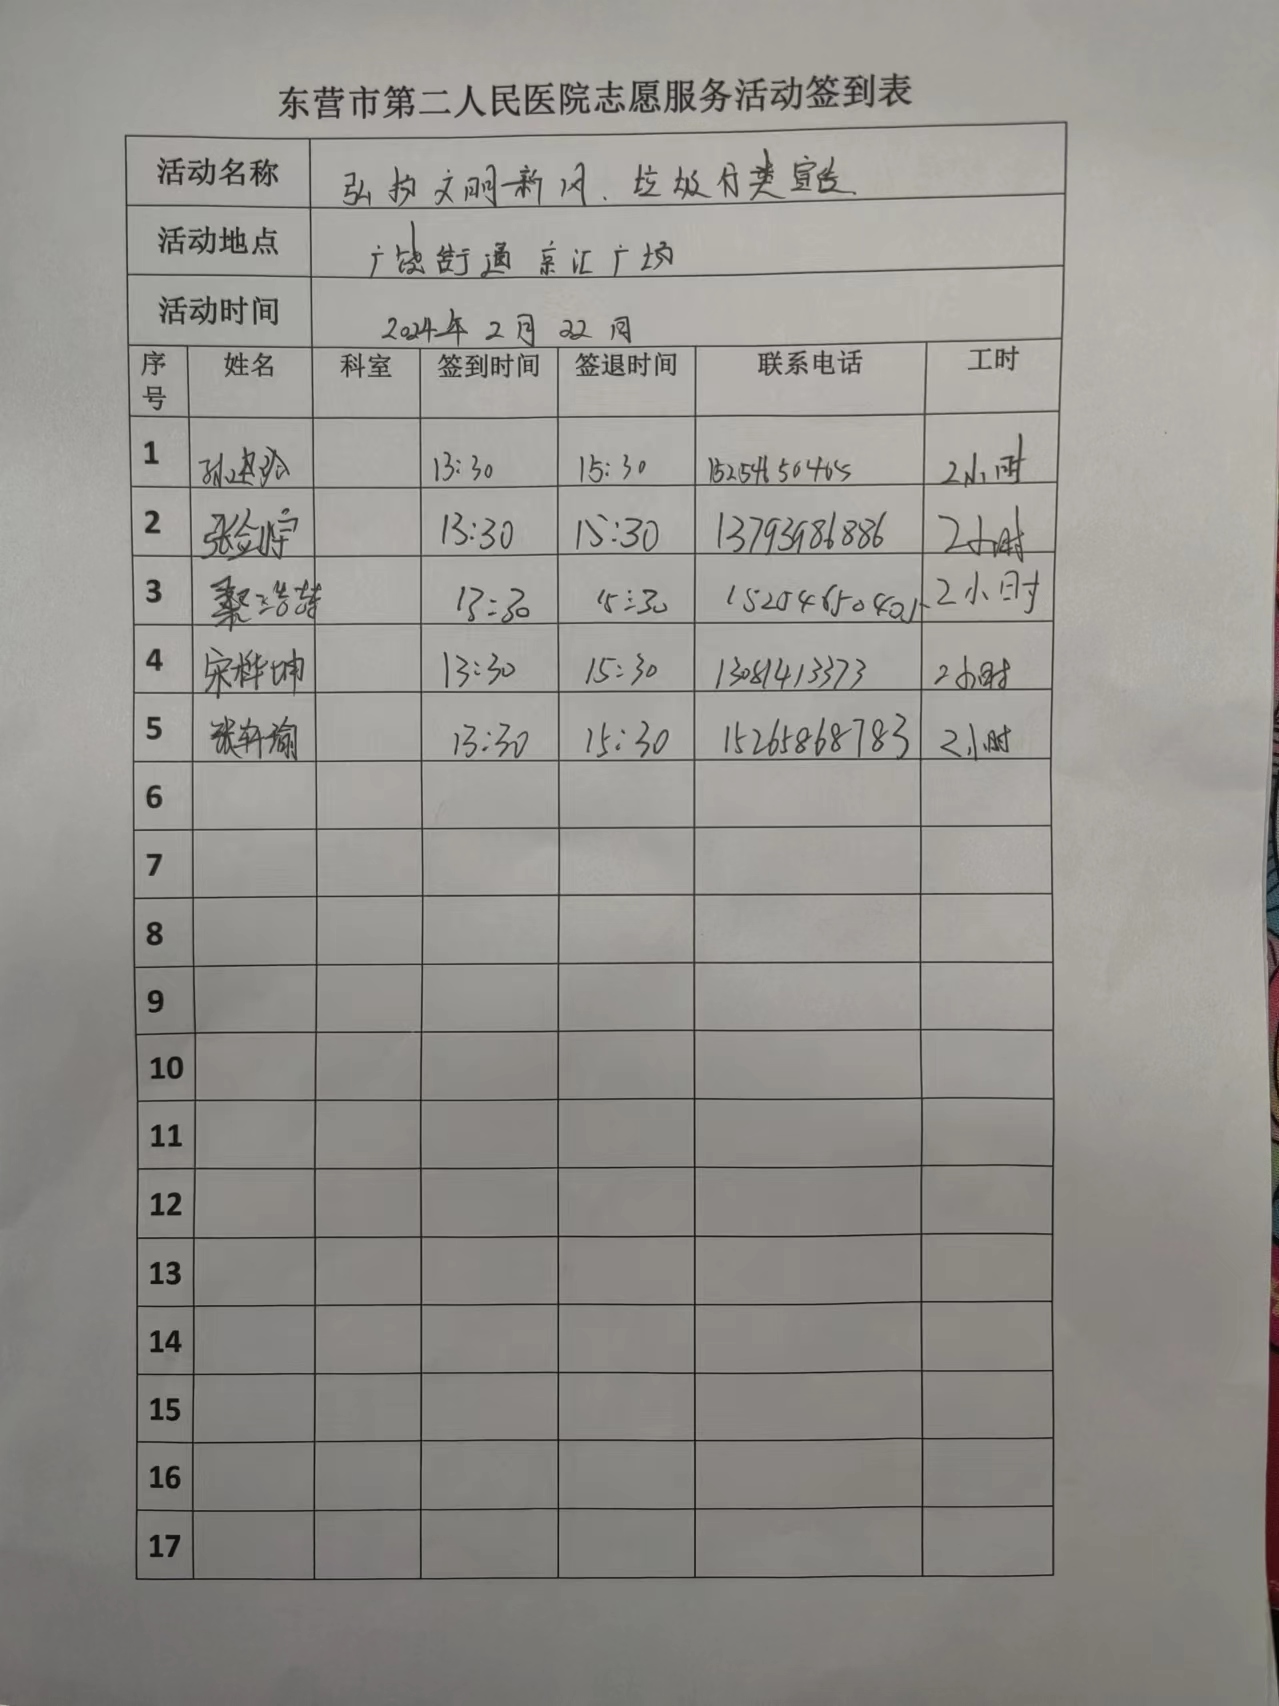 东营市第二人民医院志愿服务活动签到表
活动名称 弘扬文明新风、垃圾分类宣传
活动地点 广饶街道 京汇广场
活动时间 2024年2月22日
序号 姓名 科室 签到时间 签退时间 联系电话 工时
1 13:30 15:30 15254650405 2小时
2 13:30 15:30 13793986886 2小时
3 13:30 15:30 2小时
4 宋桦坤 13:30 15:30 13081413373 2小时
5 张轩瑜 13:30 15:30 15265868783 2小时
6
7
8
9
10
11
12
13
14
15
16
17